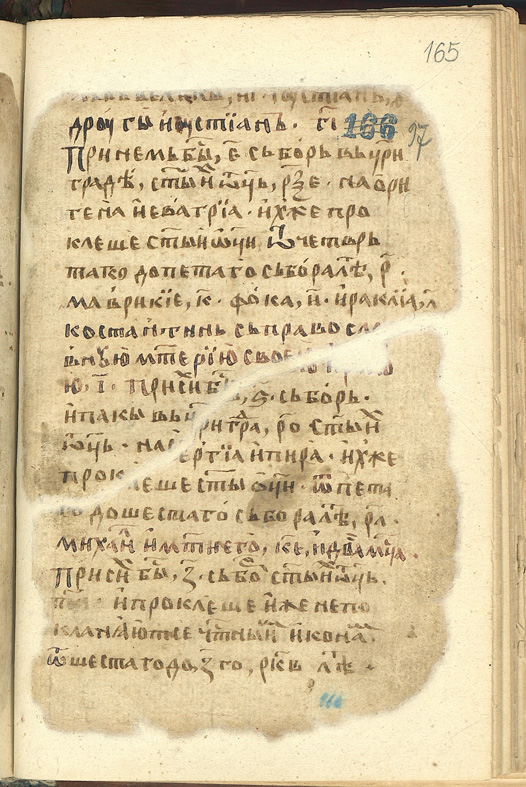 165
дроугꙑ и҆оустїанъ · гі 166 97
При немь бы҃, е҃ сьборь вь цр҃и
градѣ, ст҃ыи ѿц҃ь, рѯ҃е · на ѻри
гена и евагрїа · и҆х̾же про
клеше ст҃ыи ѿц҃и ѿ четврь
таго до петаго сьбора лѣ҃, р҃ ·
маврикїе, к҃ · фока, и҃ · и҆раклїа, л
костаньтинь сь право сла
внꙋю мт҃ерїю своею
ю, і҃ · При си бы҃, ѕ҃ · сьборь ·
и҆ пакы вь цр҃и гра, ро ст҃ыи
ѿц҃ь · на сергїа и пира · их̾же
проклеше ст҃ы ѿц҃и · ѿ пета
го до шестаго сьбора лѣ҃, рл ·
михаи и мт҃и его, ке,
При си бы҃, з҃ · сьбо ст҃ыи ѿц҃ь ·
и҆ проклеше иже не по
кланꙗют се чт҃ныи икона ·
ѿ шестаго до, з҃ го, ркв лѣ҃ ·
166